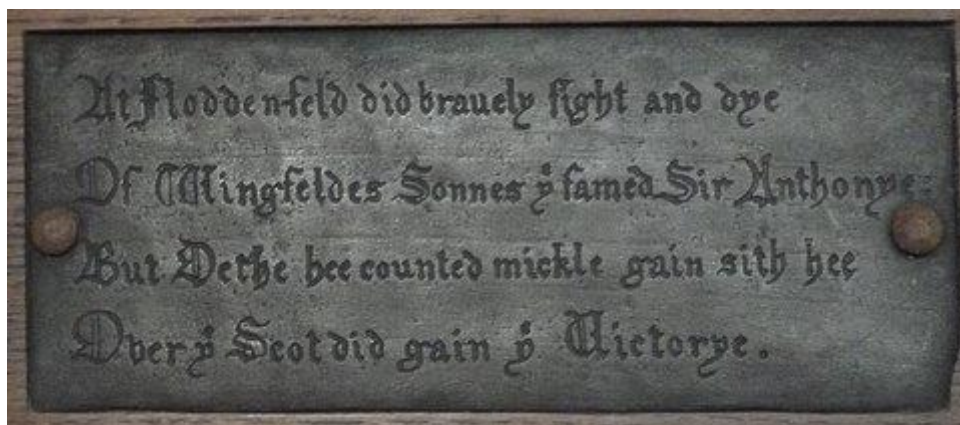 At Floddenfeld did brauely fight and dye
Of Wingfeldes Sonnes yͤ famed Sir Anthonye:
But Dethe hee counted mickle gain sith hee
Over yͤ Scot did gain yͤ Uictorye.